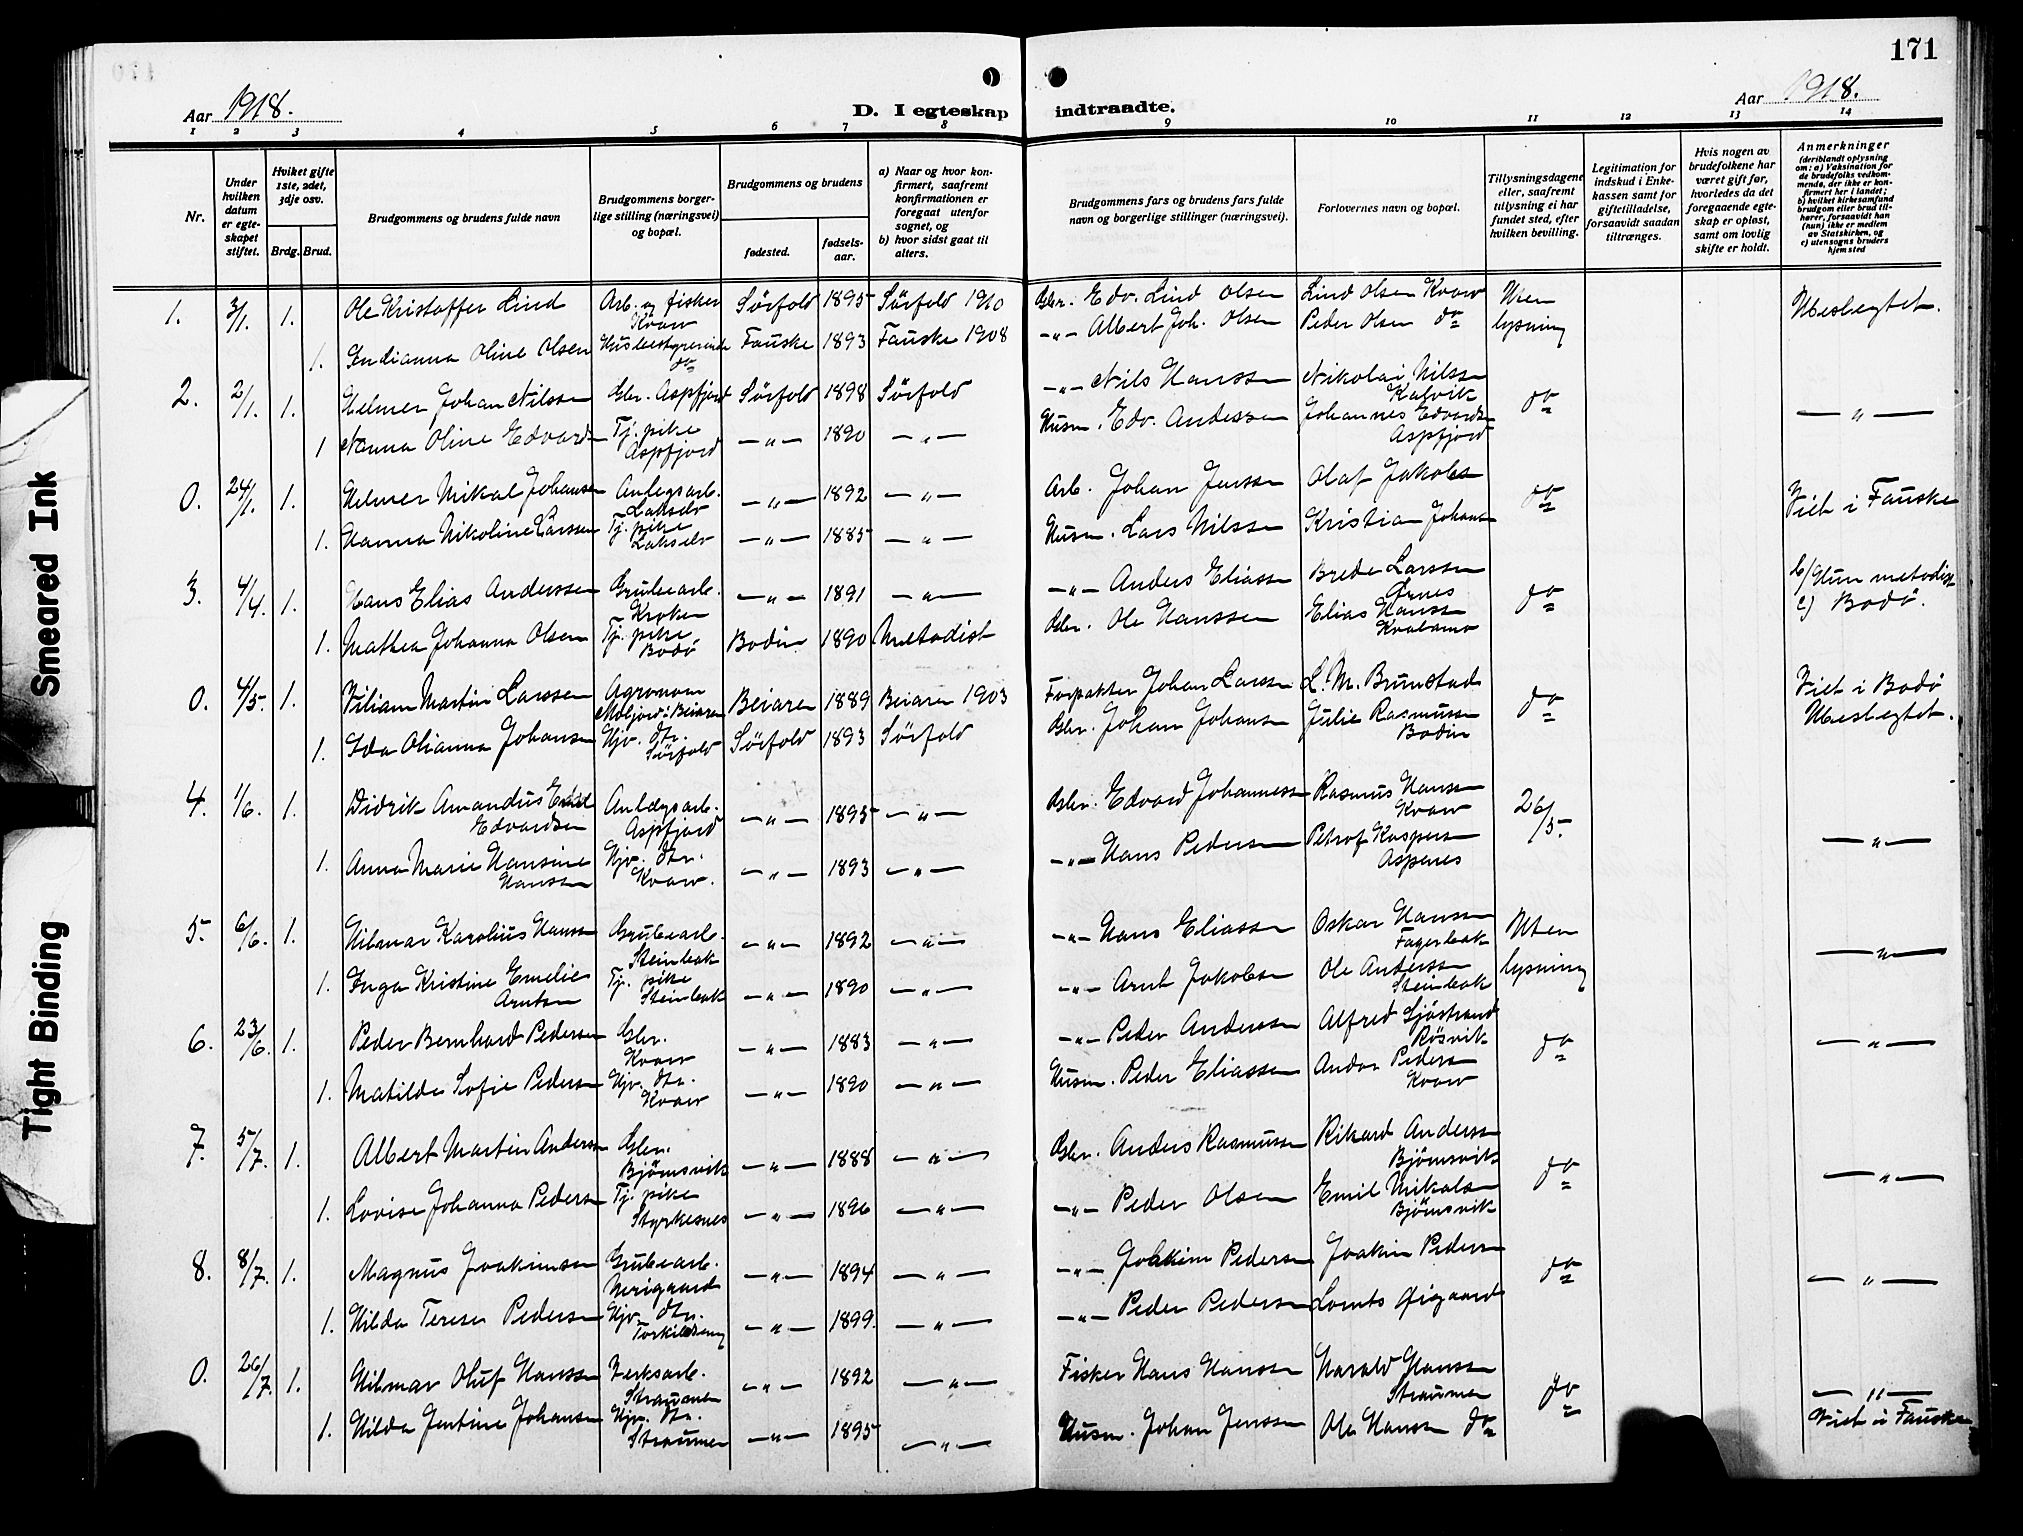 171
Aar 1918.
D. I egteskap indtraadte.
Aar 1918.
1 2 3 4 5 6 7 8 9 10 11 12 13 14
Nr.
Under hvilken datum er egteskapet stiftet.
Hvilket gifte 1ste, 2det, 3dje osv.
Brdg. Brud.
Brudgommens og brudens fulde navn
Brudgommens borgerlige stilling (næringsvei) og bopæl.
Brudgommens og brudens
fødested.
fødselsaar.
a) Naar og hvor konfirmert, saafremt konfirmationen er foregaat utenfor sognet, og
b) hvor sidst gaat til alters.
Brudgommens fars og brudens fars fulde navn og borgerlige stillinger (næringsvei).
Forlovernes navn og bopæl.
Tillysningsdagene eller, saafremt tillysning ei har fundet sted, efter hvilken bevilling.
Legitimation for indskud i Enkekassen samt for giftetilladelse, forsaavidt saadan tiltrænges.
Hvis nogen av brudefolkene har været gift før, hvorledes da det foregaaende egteskap er opløst, samt om lovlig skifte er holdt.
Anmerkninger (deriblandt oplysning om: a) Vaksination for de brudefolks vedkommende, der ikke er konfirmert her i landet; b) hvilket kirkesamfund brudgom eller brud tilhører, forsaavidt han (hun) ikke er medlem av Statskirken, og c) utensogns bruders hjemsted
1. 3/1. 1. Ole Kristoffer Lind Arb. og fisker Kvarv Sörfold 1895 Sörfold 1910 Gbr. Edv. Lind Olsen Lind Olsen Kvarv Uten lysning Ubeslegtet.
1. Indianna Oline Olsen Husbestyrerinde do Fauske 1893 Fauske 1908 -"- Albert Joh. Olsen Peder Olsen do
2. 2/1. 1. Helmer Johan Nilssen Gbr. Aspfjord Sörfold 1898 Sörfold -"- Nils Hanssen Nikolai Nilssen Kalvik do -"-
1 Nanna Oline Edvards Tj. pike Aspfjord -"- 1890 -"- Husm. Edv. Anderssen Johannes Edvardsen Aspfjord
0. 24/1. 1. Helmer Mikal Johansen Anlegsarb. Lakselv -"- 1892 -"- Arb. Johan Jenssen Olaf Jakobsen do Viet i Fauske
1. Hanna Nikoline Larssen Tj. pike Lakselv -"- 1885 -"- Husm. Lars Nilssen Kristian Johans
3. 4/4. 1. Hans Elias Anderssen Grubearb. Kroken -"- 1891 -"- -"- Anders Eliassen Brede Larssen Ørnes do b) Hun metodist
1. Mathea Johanna Olsen Tj. pike Bodö Bodin 1890 Metodist Gbr. Ole Hanssen Elias Hanssen c) Bodö.
0. 4/5. 1. Viliam Martin Larssen Agronom Moljord i Beiaren Beiaren 1889 Beiaren 1903 Forpakter Johan Larssen L. M. Brunstad do Viet i Bodö
1. Ida Olianna Johansen Hjv. dtr. Sörfold Sörfold 1893 Sörfold Gbr. Johan Johansen Julie Rasmussen Bodin Ubeslegtet.
4. 1/6. 1. Didrik Amandus Edvardsen Anlegsarb. Aspfjord -"- 1895 -"- Gbr. Edvard Johannessen Rasmus Hanssen Kvarv 26/5. -"-
1. Anna Marie Hansine Hanssen Hjv. dtr. Kvarv. -"- 1893 -"- -"- Hans Pedersen Petrof Kaspersen Aspenes
5. 6/6. 1. Hilmar Karolius Hanssen Grubearb. Steinbak -"- 1892 -"- -"- Hans Eliassen Oskar Hanssen Fagerbak Uten lysning -"-
1. Inga Kristine Emelie Arntsen Tj. pike Steinbak -"- 1890 -"- -"- Arnt Jakobsen Ole Anderssen Steinbak
6. 23/6. 1. Peder Bernhard Pedersen Gbr. Kvarv -"- 1883 -"- -"- Peder Anderssen Alfred Sjöstrand Røsvik do -"-
1. Matilde Sofie Pedersen Hjv. dtr. Kvarv -"- 1890 -"- Husm. Peder Eliassen Andor Pedersen Kvarv
7. 5/7. 1. Albert Martin Anderssen Gbr. Bjørnsvik -"- 1888 -"- Gbr. Anders Rasmussen Rikard Anderssen Bjørnsvik do -"-
1. Lovise Johanna Pedersen Tj. pike Styrkesnes -"- 1896 -"- -"- Peder Olsen Emil Mikalsen Bjørnsvik
8. 8/7. 1. Magnus Joakimsen Grubearb. -"- 1894 -"- -"- Joakim Pedersen Joakim Pedersen do -"-
1. Hilda Terese Pedersen Hjv. dtr. Torkilseng -"- 1899. -"- -"- Peder Pedersen Lornts Øigaard
0. 26/7. 1. Hilmar Oluf Hanssen Verksarb. Straumen -"- 1892 -"- Fisker Hans Hanssen Harald Hanssen Straumen do -"-
1. Hilda Jentine Johansen Hjv. dtr. Straumen -"- 1895 -"- Husm. Johan Jenssen Ole Hanssen do Viet i Fauske
Smeared Ink
Tight Binding